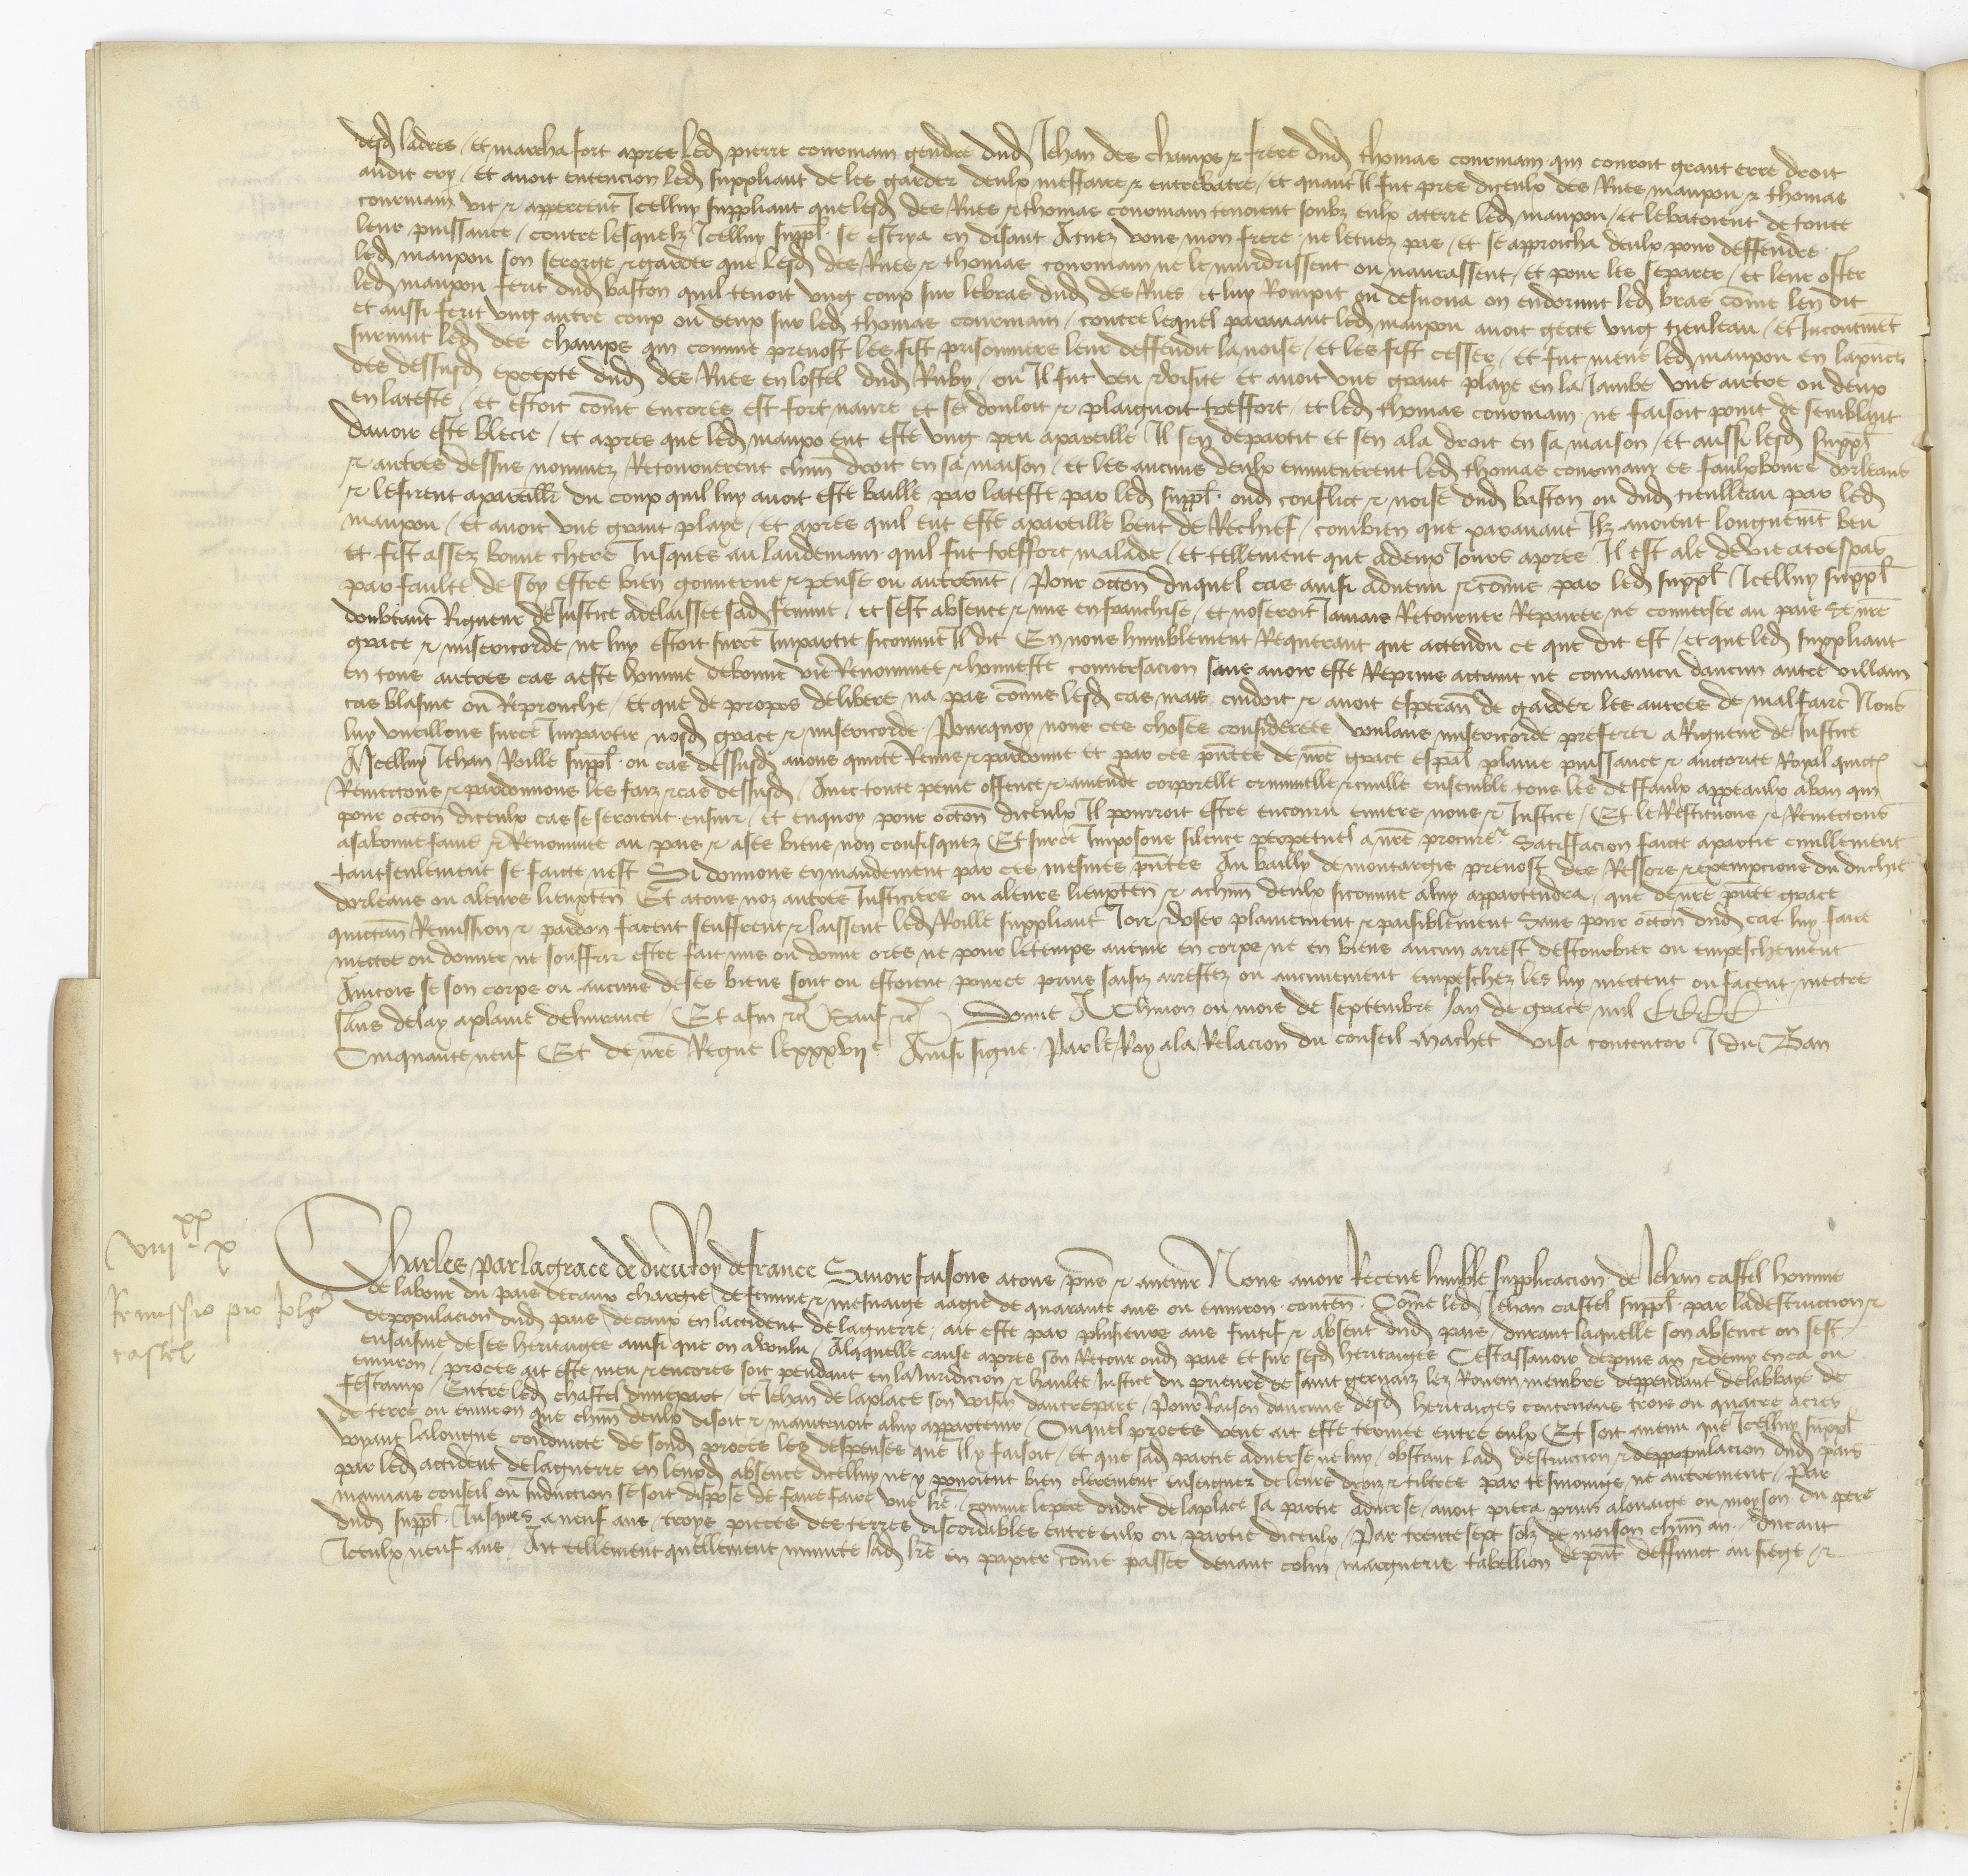 desd ladres / Et marcha fort apres led pierre couromam gendre dud Jehan des champs & frere dud thomas couromam qui couroit grant erre droit
audit cry / Et avoit entencion led suppliant de les garder deulx meffaire & entrebatre / et quant Il fut pres diceulx des Rues maupou & thomas
couromam vit & apperceut Icelluy suppliant que lesd des Rues & thomas couromam tenoient soubz eulx aterre led maupou / et le batoient de toute
leur puissance / contre lesquelz Icelluy suppl se escrya en disant Avez vous mon frere ne letuez pas / Et se approucha deulx pour deffendre
led maupou son serorge & garder que lesd des Rues & thomas couromam ne le murdrissent ou navrassent / et pour les separer / et leur oster
led maupou ferit dud baston quil tenoit ung coup sur lebras dud des Rues et luy Rompit ou desnoua ou endormit led bras come len dit
et aussi ferit ung autre coup ou deux sur led thomas couromam / contre lequel paravant led maupou avoit gecte ung tieuleau / et Incontinet
survint led des champs qui comme prevost les fist prisonniers leur deffendit la noise / et les fist cesser / et fut mene led maupou en lapnce
des dessusd excepte dud des Rues en lostel dud Ruby / ou Il fut veu & visite et avoit une grant playe en la Jambe une autre ou deux
en lateste / et estoit come encores est fort navre et se douloit & plaignoit treffort / et led thomas couromam ne faisoit point de semblant
davoir este blecie / et apres que led maupo eut este ung peu apareille Il sen departit et sen ala droit en sa maison / et aussi lesd suppl
& autres dessus nommez Retournerent chun droit en sa maison / et les aucuns deulx emmenerent led thomas couromam es faulxbours dorleans
& lefirent apareillr du coup quil luy avoit este baille par lateste par led suppl oud conflict & noise dud baston ou dud tieulleau par led
maupou / et avoit une grant playe / et apres quil eut este apareille beut de Rechief / combien que paravant Ilz avoient longuemt beu
et fist assez bonne chere Jusques au landemain quil fut treffort malade / et tellement que adeux Jours apres Il est ale de vie a trespas
par faulte de soy estre bien gouverne & pense ou autremt / Pour occon duquel cas ainsi advenu & come par led suppl Icelluy suppl
doubtant Rigueur de Justice adelaissee sad femme / et sest absente & mis en franchise / et noseroit Jamais Retourner Reparer ne converser au pais se nre
grace & misericorde ne luy estoit surce Impartie sicomme Il dit En nous humblement Requerant que actendu ce que dit est / et que led suppliant
en tous autres cas a este homme debonne vie Renommee & honneste conversacion sans avoir este Reprins actaint ne convaincu daucun autre villain
cas blasme ou Reprouche / et que de propos delibere na pas come lesd cas mais cuidoit & avoit esperan de garder les autres de malfaire Nous
luy vueillons surce Impartir nosd grace & misericorde Pourquoy nous ces choses considerees voulans misericorde preferer a Rigueur de Justice
A Icelluy Jehan Roille suppl ou cas dessusd avons quicte Remis & pardonne et par ces pntes de nre grace espal plaine puissance & auctorite Royal quict
Remectons & pardonnons les faiz & cas dessusd / Avec toute peine offence & amende corporelle criminelle & civille ensemble tous les deffaulx appeaulx aban qui
pour occon diceulx cas se seroient ensuir / et enquoy pour occon diceulx Il pourroit estre encouru envers nous & Justice / Et le Restituons & Remectons
asabonne fame & Renommee au pais & ases biens non confisquez Et surce Imposons silence perpetuel a nre procure Satisfacion faicte apartie civillement
tant seulement se faicte nest Si donnons en mandement par ces mesmes pntes Au bailly de montargis prevost des Ressors & exempcions du duchie
dorleans ou aleurs lieuxten Et atous noz autres Justiciers ou aleurs lieuxten & achun deulx sicomme aluy appartendra / que de nre pnte grace
quictan Remission & pardon facent seuffrent & laissent led Roille suppliant Joir & user plainement & paisiblement Sans pour occon dud cas luy faire
mectre ou donner ne souffrir estre fait mis ou donne ores ne pour letemps avenir en corps ne en biens aucun arrest destourbier ou empeschement
Aincois se son corps ou aucuns deses biens sont ou estoient pource prins saisiz arrestez ou aucunement empeschez les luy mectent ou facent mectre
sans delay aplaine delivrance / Et afin &c Sauf &c Donne A Chinon ou mois de septembre lan de grace mil CCCC
Cinquante neuf Et de nre Regne lexxxvije Ainsi signe Par le Roy ala Relacion du conseil Machet Visa contentor J du Ban
viii xx x
Remissio pro Johe
castel
Charles par la grace de dieu Roy de france Savoir faisons atous pns & avenir Nous avoir Receue humble supplicacion de Jehan castel homme
de labour du pais decaux chargie defemme & mesnaige aagie de quarante ans ou environ conten Come led Jehan castel suppl par ladestruccion &
depopulacion dud pais decaux en laccident delaguerre / ait este par plusieurs ans fuitif & absent dud pais / durant laquelle son absence on sest
ensaisine deses heritaiges ainsi que on avoulu / Alaquelle cause apres son Retour oud pais et sur sesd heritaiges Cestassavoir depuis an & demy enca ou
environ / proces ait este meu & encores soit pendant en la Juridicion & haulte Justice du prieure de saint gervaiz lez Rouen membre deppendant delabbaye de
fescamp / Entre led chastel dunepart / et Jehan de laplace son voisin dautrepart / Pour Raison daucuns desd heritaiges contenans trois ou quatre acres
de terre ou environ que chun deulx disoit & maintenoit aluy appartenir / Ouquel proces veue ait este termee entre eulx Et soit avenu que Icelluy suppl
voyant lalongue conduicte de sond proces les despenses que Il y faisoit / et que sad partie adverse ne luy / obstant lad destruction & deppopulacion dud pais
par led accident delaguerre en leurd absence dicelluy ne y povoient bien clerement enseigner deleurs droiz & tiltres par tesmoings ne autrement / Par
mauvais conseil ou Induction se soit dispose de faire faire une lre / comme lepere dudit delaplace sa partie adverse / avoit pieca prins alouaige ou moyson du pere
dud suppl Jusques a neuf ans / troys pieces des terres discordables entre eulx ou partie diceulx / Par trente sept solz de moison chun an / durant
Iceulx neuf ans / Ait tellement quellement minute lad lre en papier come passee devant colin marguerie tabellion depnt deffunct au siege &